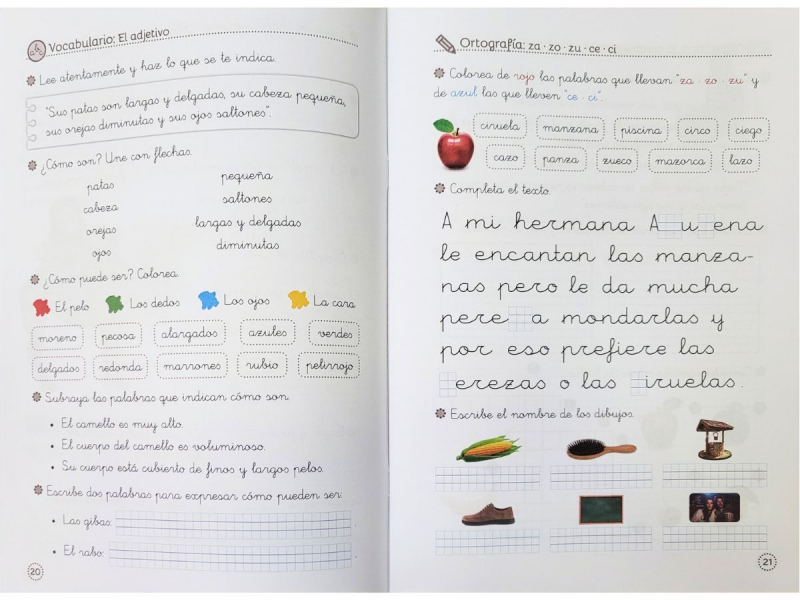 Vocabulario: El adjetivo
Lee atentamente y haz lo que se te indica.
"Sus patas son largas y delgadas, su cabeza pequeña,
sus orejas diminutas y sus ojos saltones".
¿Cómo son? Une con flechas.
patas pequeña
cabeza saltones
orejas largas y delgadas
ojos diminutas
¿Cómo puede ser? Colorea.
El pelo Los dedos Los ojos La cara
moreno pecosa alargados azules verdes
delgados redonda marrones rubio pelirrojo
Subraya las palabras que indican cómo son.
• El camello es muy alto.
• El cuerpo del camello es voluminoso.
• Su cuerpo está cubierto de finos y largos pelos.
Escribe dos palabras para expresar cómo pueden ser:
• Las gibas:
• El rabo:
20
Ortografía: za · zo · zu · ce · ci
Colorea de rojo las palabras que llevan "za · zo · zu" y
de azul las que lleven "ce · ci".
ciruela manzana piscina circo ciego
cazo panza zueco mazorca lazo
Completa el texto.
A mi hermana A u ena
le encantan las manza-
nas pero le da mucha
pere a mondarlas y
por eso prefiere las
erezas o las iruelas.
Escribe el nombre de los dibujos.
21